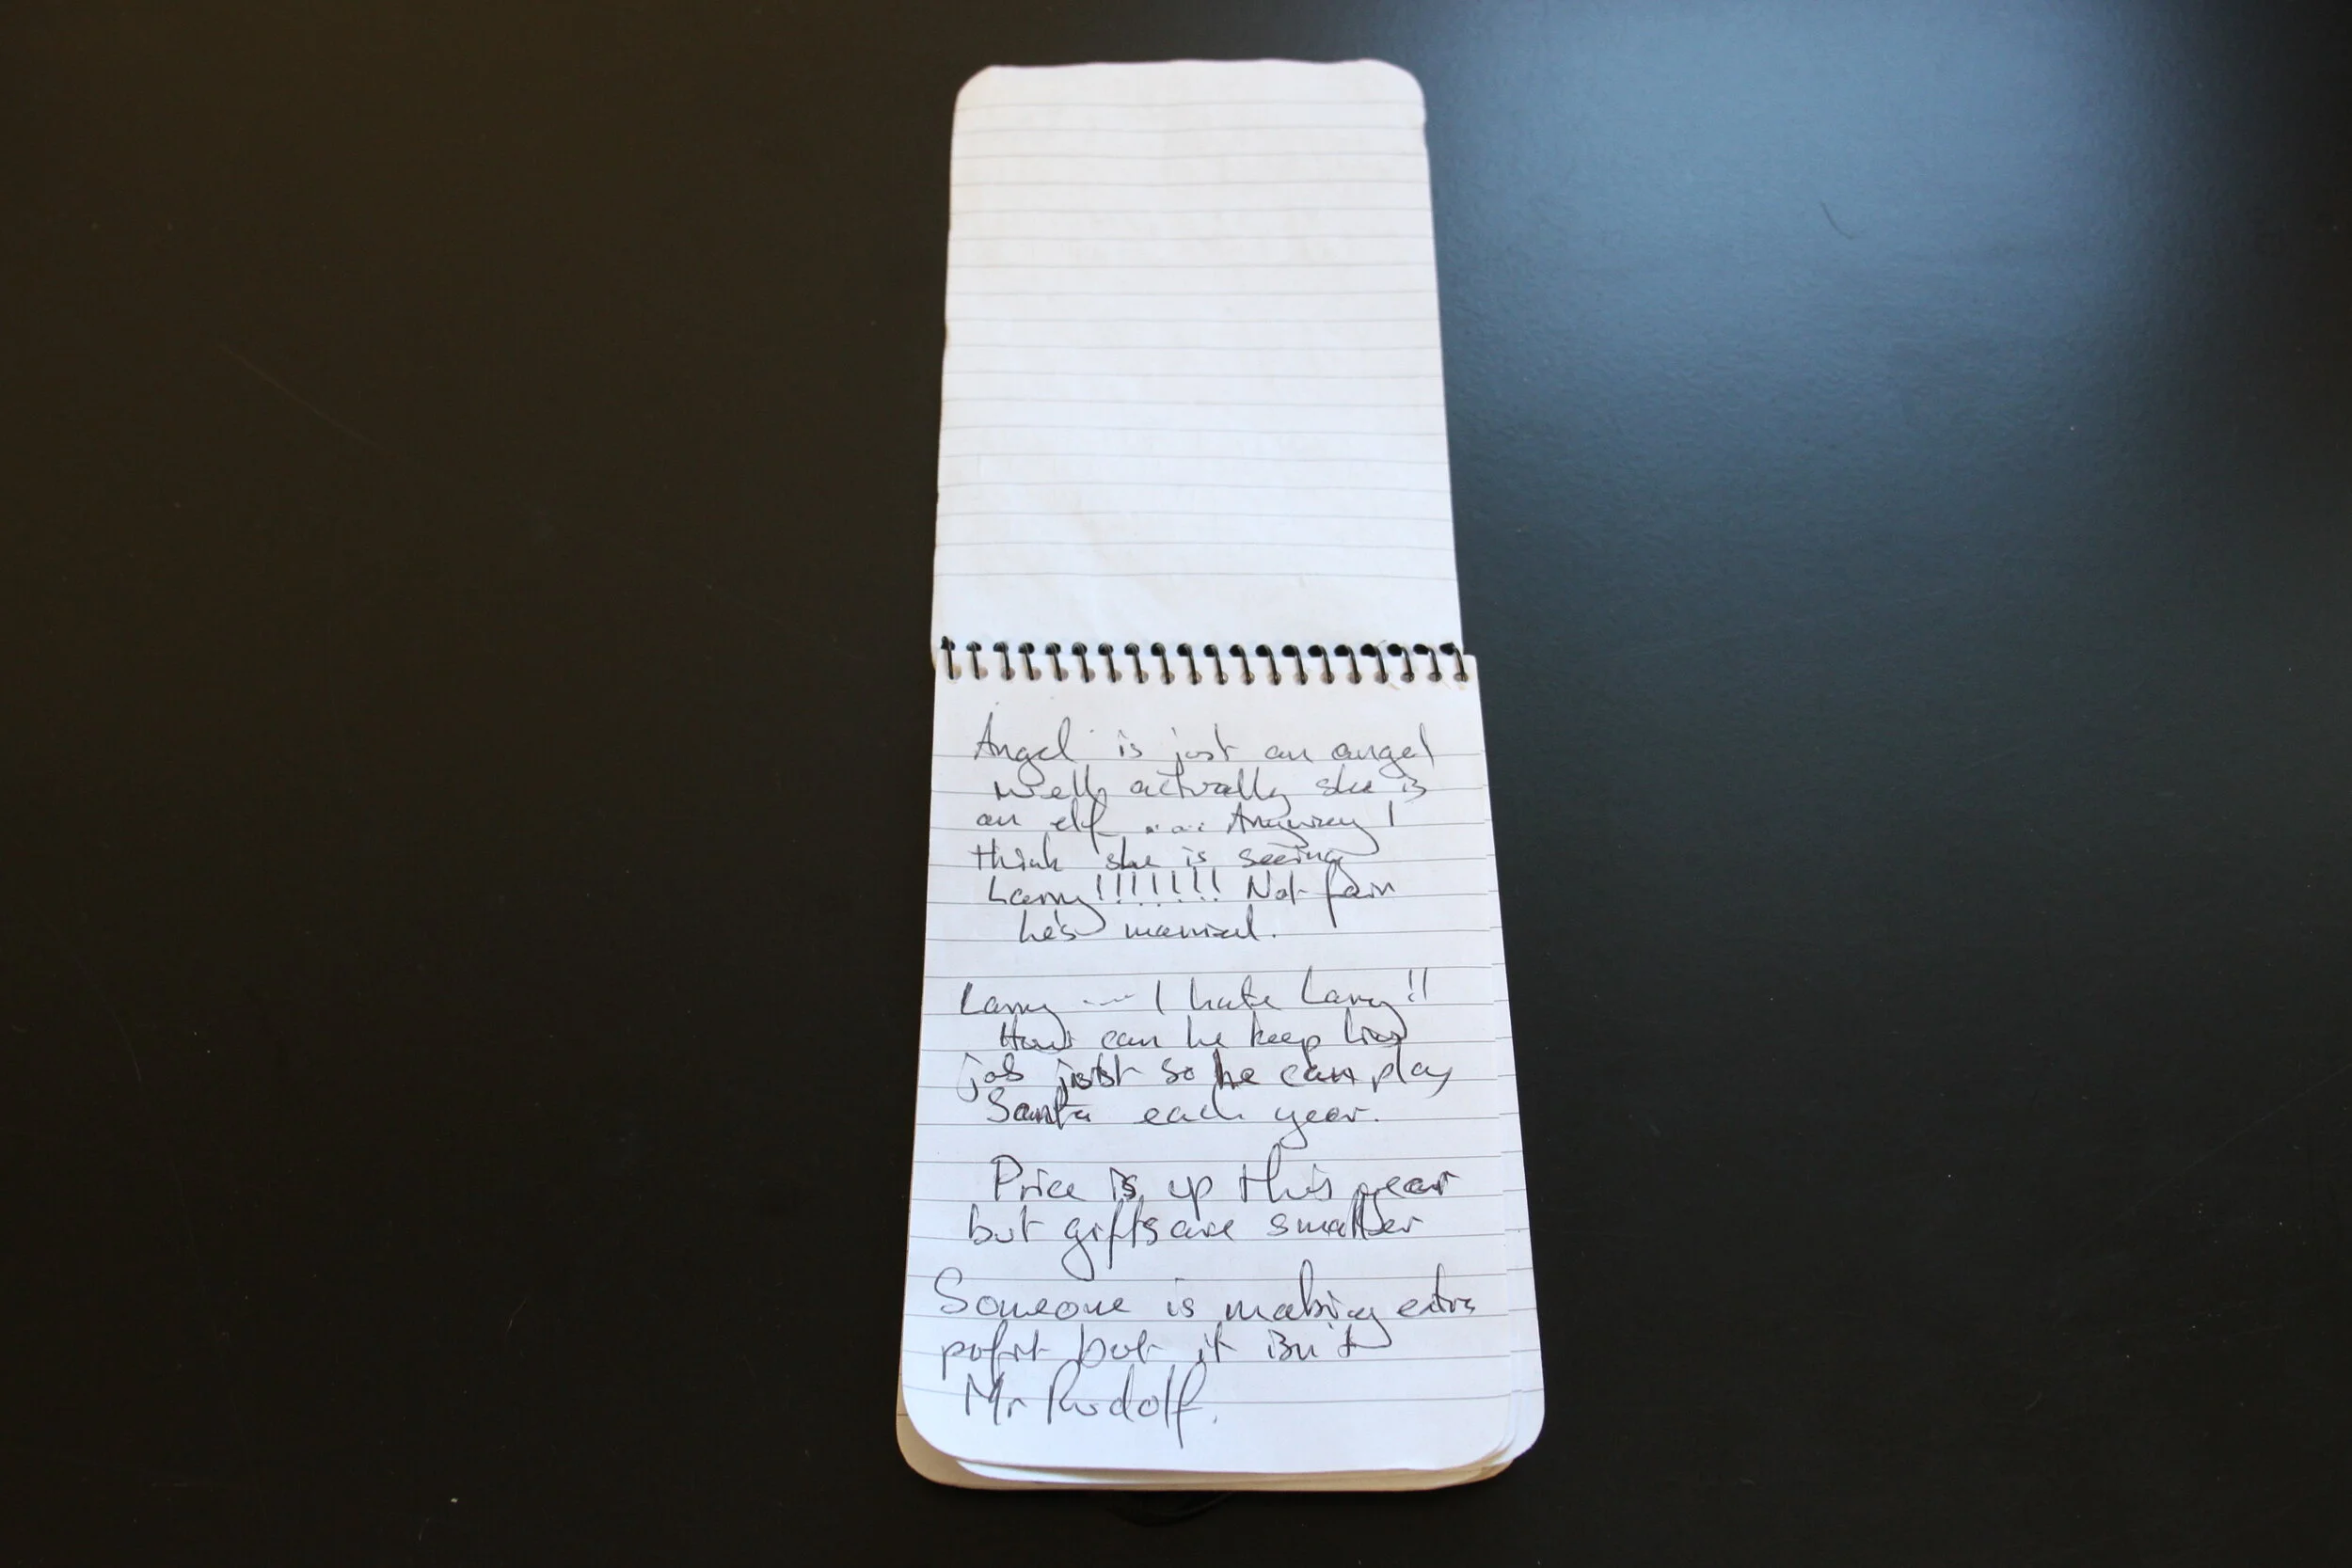 Angel is just an angel
well actually she is
an elf .... Anyway I
think she is seeing
Larry!!!!!!! Not fair
he's married.
Larry --- I hate Larry!!
How can he keep his
job just so he can play
Santa each year.
Price is up this year
but gifts are smaller
Someone is making extra
pofit but it isn't
Mr Rudolf.